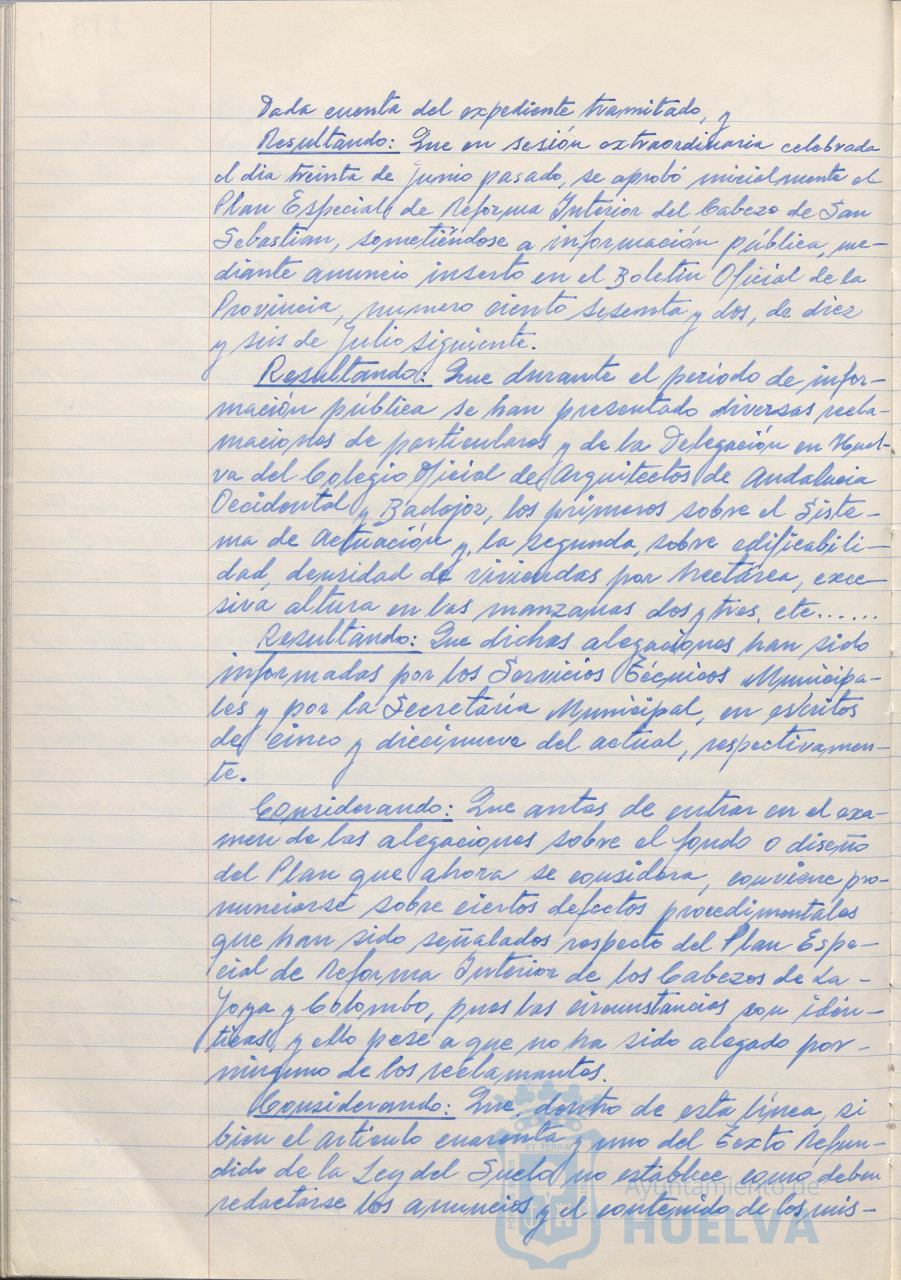 Dada cuenta del expediente tramitado, y
Resultando: Que en sesión extraordinaria celebrada
el dia treinta de Junio pasado, se aprobó inicialmente el
Plan Especial de Reforma Interior del Cabezo de San
Sebastian, sometiéndose a información pública, me-
diante anuncio inserto en el Boletin Oficial de la
Provincia, numero ciento sesenta y dos, de diez
y seis de Julio siguiente.
Resultando: Que durante el periodo de infor-
mación pública se han presentado diversas recla-
maciones de particulares y de la Delegación en Huel-
va del Colegio Oficial de Arquitectos de Andalucia
Occidental y Badajoz, los primeros sobre el Siste-
ma de Actuación y, la segunda, sobre edificabili-
dad, densidad de viviendas por hectárea, exce-
siva altura en las manzanas dos y tres, etc......
Resultando: Que dichas alegaciones han sido
informadas por los Servicios Técnicos Municipa-
les y por la Secretaría Municipal, en escritos
de cinco y diecinueve del actual, respectivamen-
te.
Considerando: Que antes de entrar en el exa-
men de las alegaciones sobre el fondo o diseño
del Plan que ahora se considera, conviene pro-
nunciarse sobre ciertos defectos procedimentales
que han sido señalados respecto del Plan Espe-
cial de Reforma Interior de los Cabezos de La-
Joya y Colombo, pues las circunstancias son idén-
ticas, y ello pese a que no ha sido alegado por-
ninguno de los reclamantes.
Considerando: Que, dentro de esta línea, si
bien el artículo cuarenta y uno del Texto Refun-
dido de la Ley del Suelo, no establece como deben
redactarse los anuncios y el contenido de los mis-
Ayuntamiento de
HUELVA